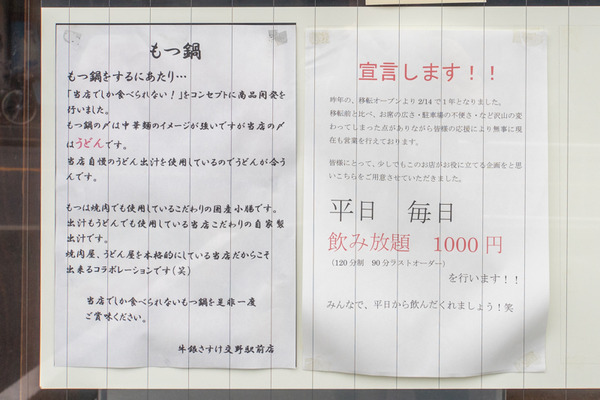 もつ鍋
もつ鍋をするにあたり…
「当店でしか食べられない!」をコンセプトに商品開発を
行いました。
もつ鍋の〆は中華麺のイメージが強いですが当店の〆
はうどんです。
当店自慢のうどん出汁を使用しているのでうどんが合う
んです。
もつは焼肉でも使用しているこだわりの国産小腸です。
出汁もうどんでも使用している当店こだわりの自家製
出汁です。
焼肉屋、うどん屋を本格的にしている当店だからこそ
出来るコラボレーションです(笑)
当店でしか食べられないもつ鍋を是非一度
ご賞味ください。
牛銀さすけ交野駅前店
宣言します!!
昨年の、移転オープンより 2/14 で 1 年となりました。
移転前と比べ、お席の広さ・駐車場の不便さ・など沢山の変
わってしまった点がありながら皆様の応援により無事に現
在も営業を行えております。
皆様にとって、少しでもこのお店がお役に立てる企画をと思
いこちらをご用意させていただきました。
平日 毎日
飲み放題 1000 円
(120 分制 90 分ラストオーダー)
を行います!!
みんなで、平日から飲んだくれましょう!笑